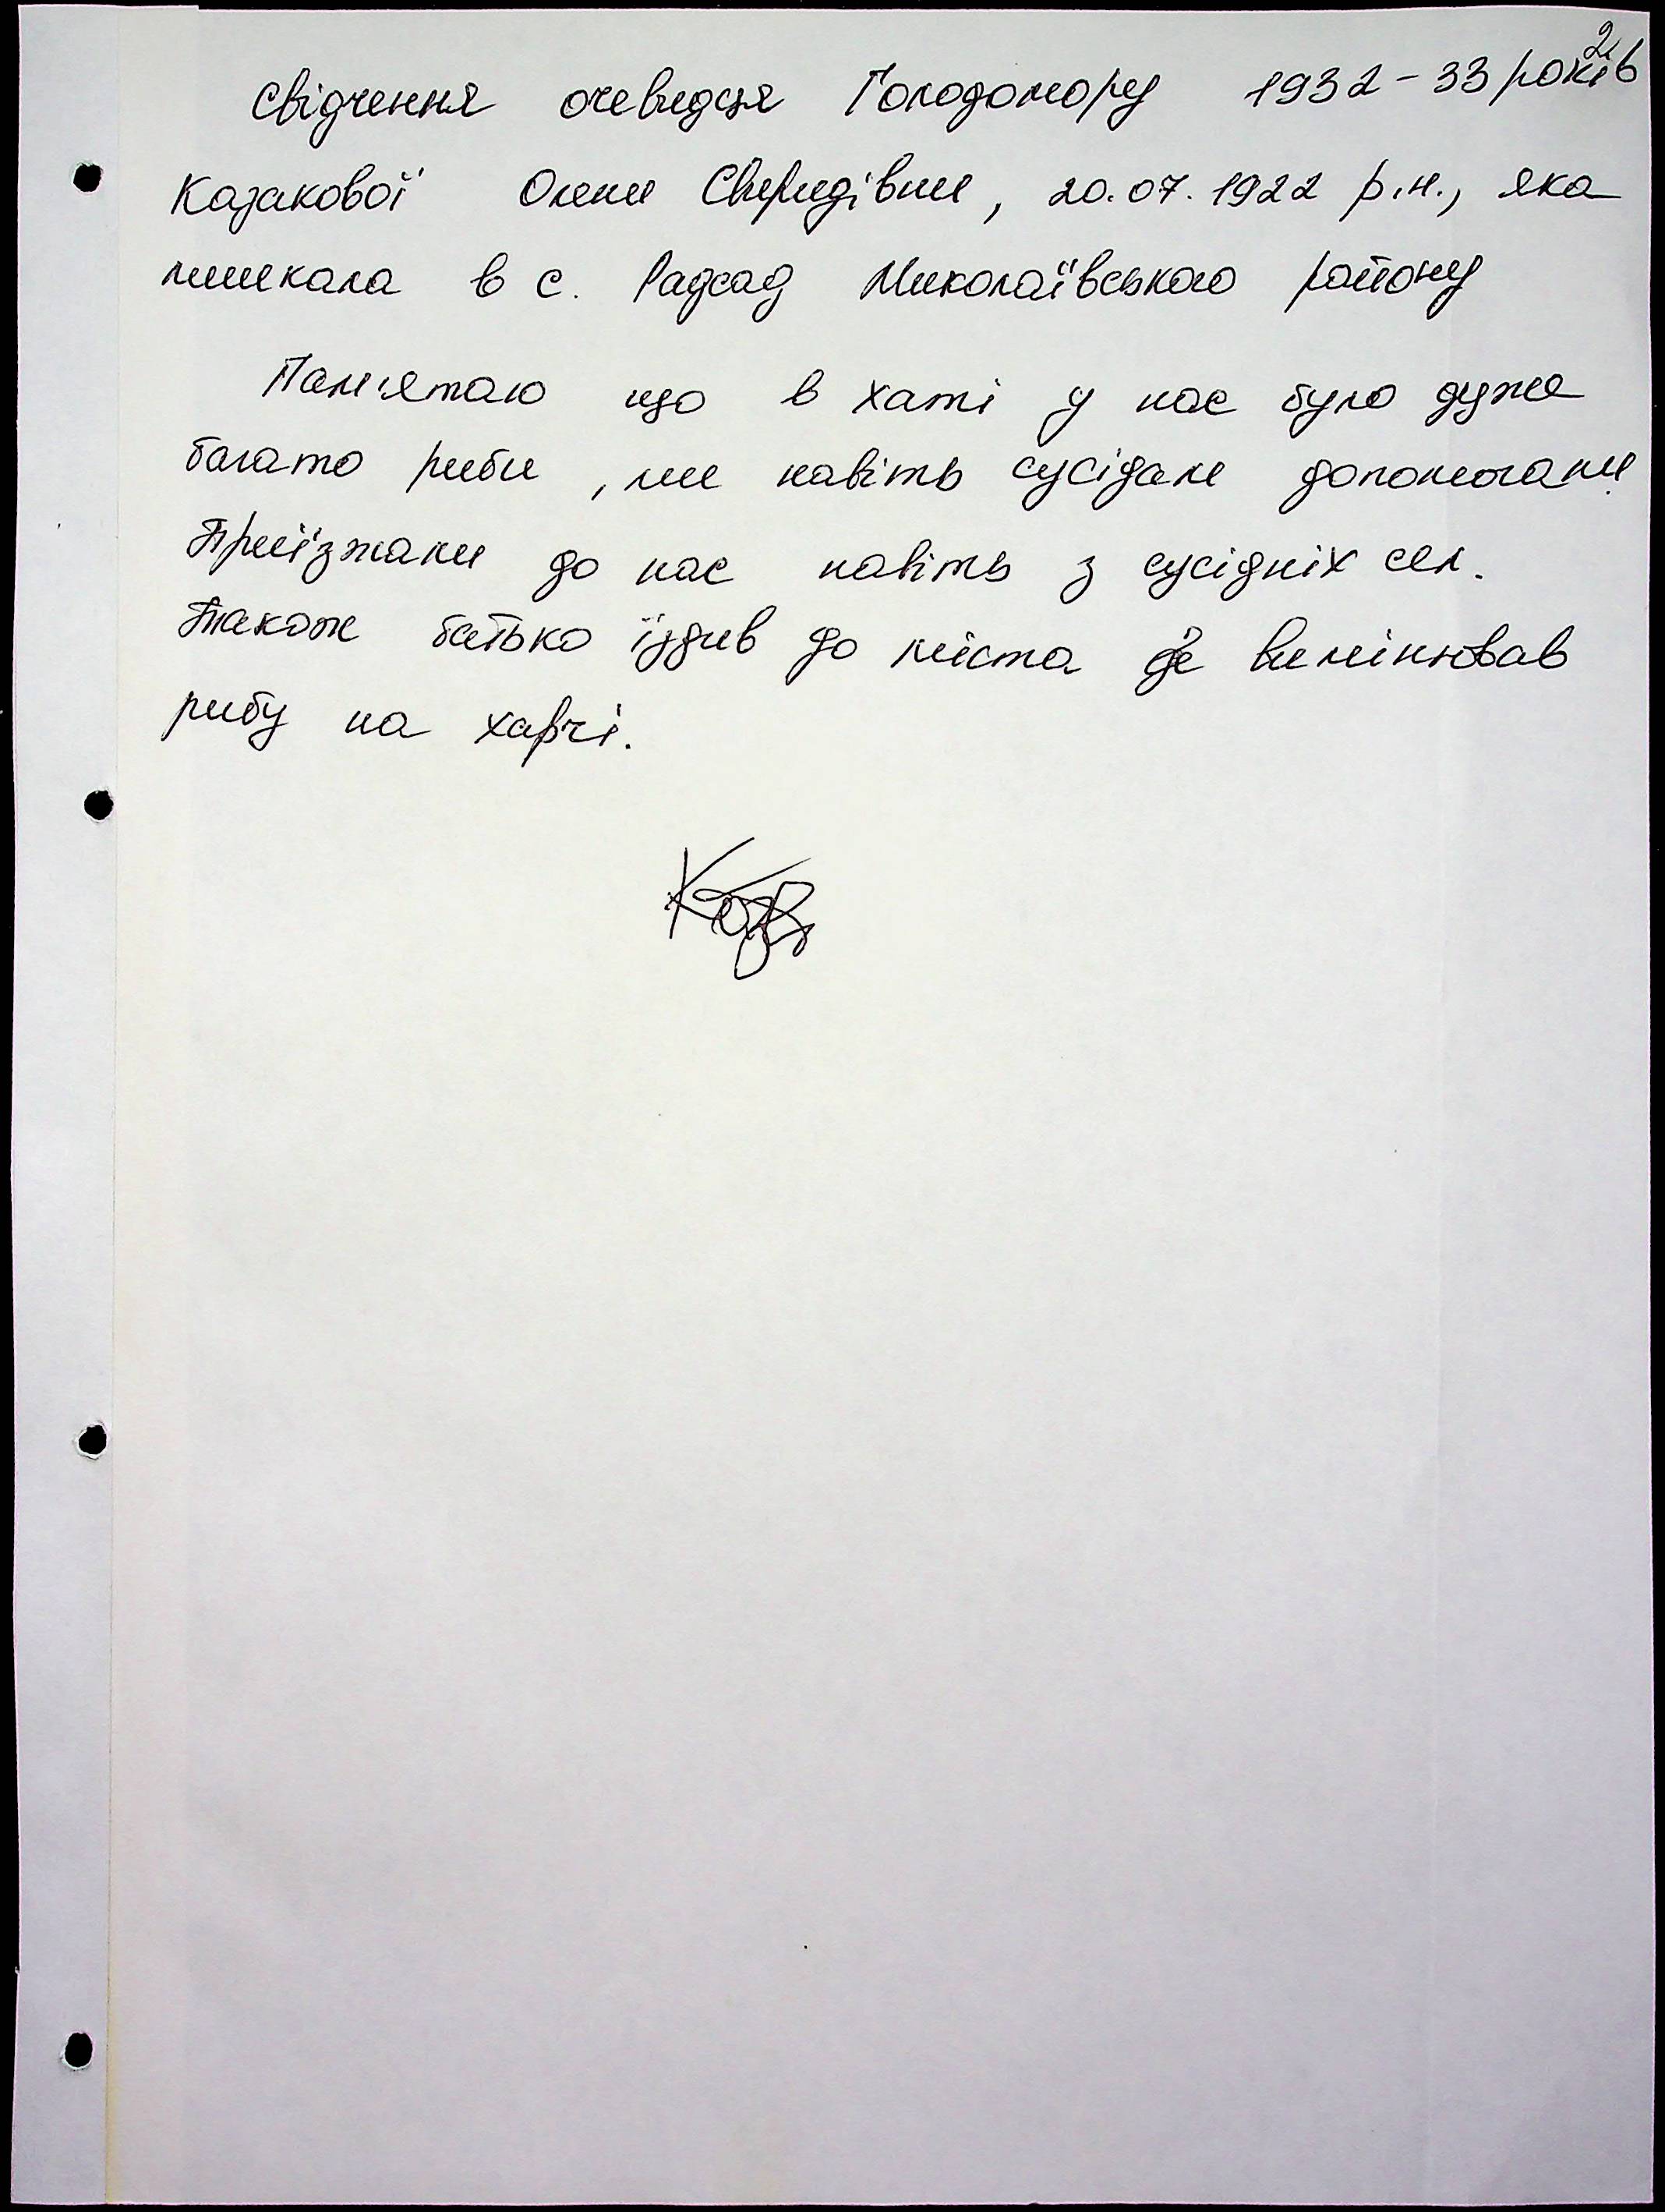 2
Свідчення очевидця Голодомору 1932-33 років
Казакової Олени Свиридівни, 20.07.1922 р.н., яка
мешкала в с. Радсад Миколаївського району
Пам'ятаю що в хаті у нас було дуже
багато риби, ми навіть сусідам допомогали.
Приїзжали до нас навіть з сусідніх сел.
Також батько їздив до міста де вимінював
рибу на харчі.